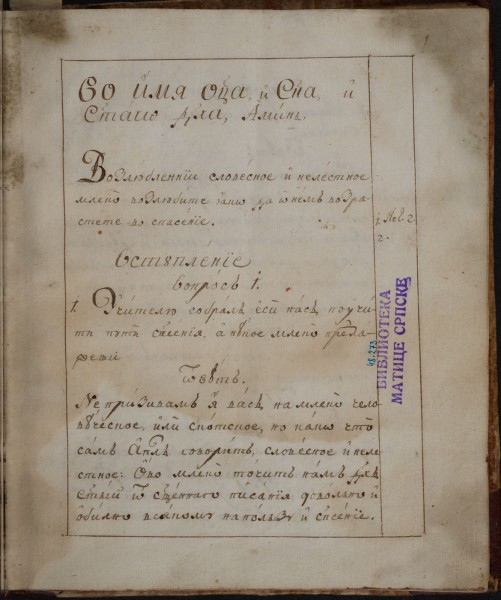 Во имя оца, и Сна, и
Стаго дха, Аминь
Возлюбленнїи словесное и нелестное
млеко возлюбите
да ѿ немъ возра-
стете во спасенїе.
Вступленїе
вопросъ 1.
1. Учителю собралъ еси насъ, поучи-
ти пути спсенїя, а нное млеко предла-
гаеши
Ѿвѣтъ.
Не призивамъ я васъ, на млеко чело-
вѣческое, или скотское, но како что
самъ Апслъ говоритъ, словесное и неле-
стное: Ово млеко точитъ намъ дхъ
стый ѿ сщеннаго писанїя доволно и
обилно всякому на ползу и спсенїе.
1
1. Пет. 2.
2.
48.273
БИБЛИОТЕКА
МАТИЦЕ СРПСКЕ